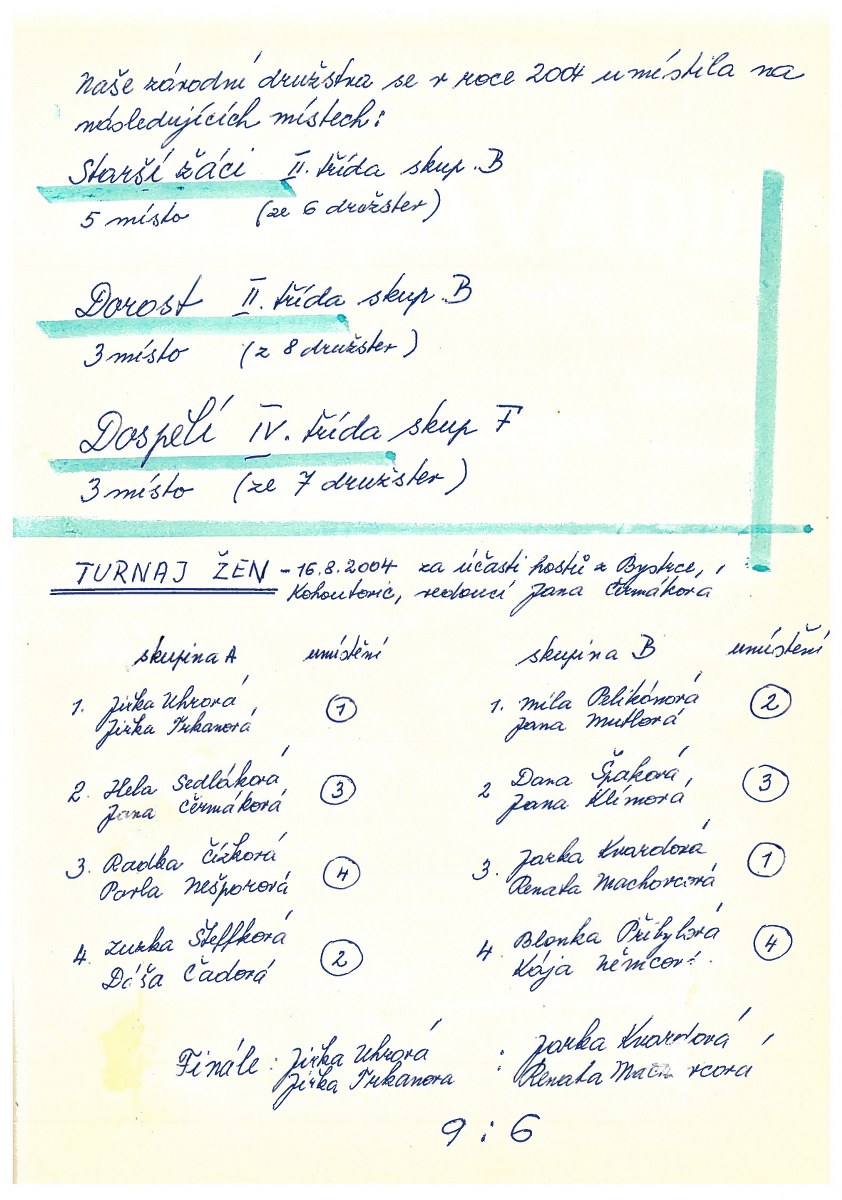 Naše závodní družstva se v roce 2004 umístila na
následujících místech:
Starší žáci II. třída skup. B
5 místo (ze 6 družstev)
Dorost II. třída skup. B
3 místo (z 8 družstev)
Dospělí IV. třída skup F
3 místo (ze 7 družstev)
TURNAJ ŽEN - 16.8.2004 za účasti hostů z Bystrce,
Kohoutovic, vedoucí Jana Čermáková
skupina A umístění
1. Jirka Uhrová
Jirka Trkanová 1
2. Hela Sedláková
Jana Čermáková 3
3. Radka Čížková
Pavla Nešporová 4
4. Zurka Šteffková
Dáša Čadová 2
skupina B umístění
1. Míla Pelikánová
Jana Mutlová 2
2 Dana Špaková
Jana Klímová 3
3. Jarka Kvardová
Renata Machovcová 1
4 Blanka Přibylová
Kája Němcová 4
Finále : Jirka Uhrová : Jarka Kvardová
Jirka Trkanova Renata Machovcová
9 : 6